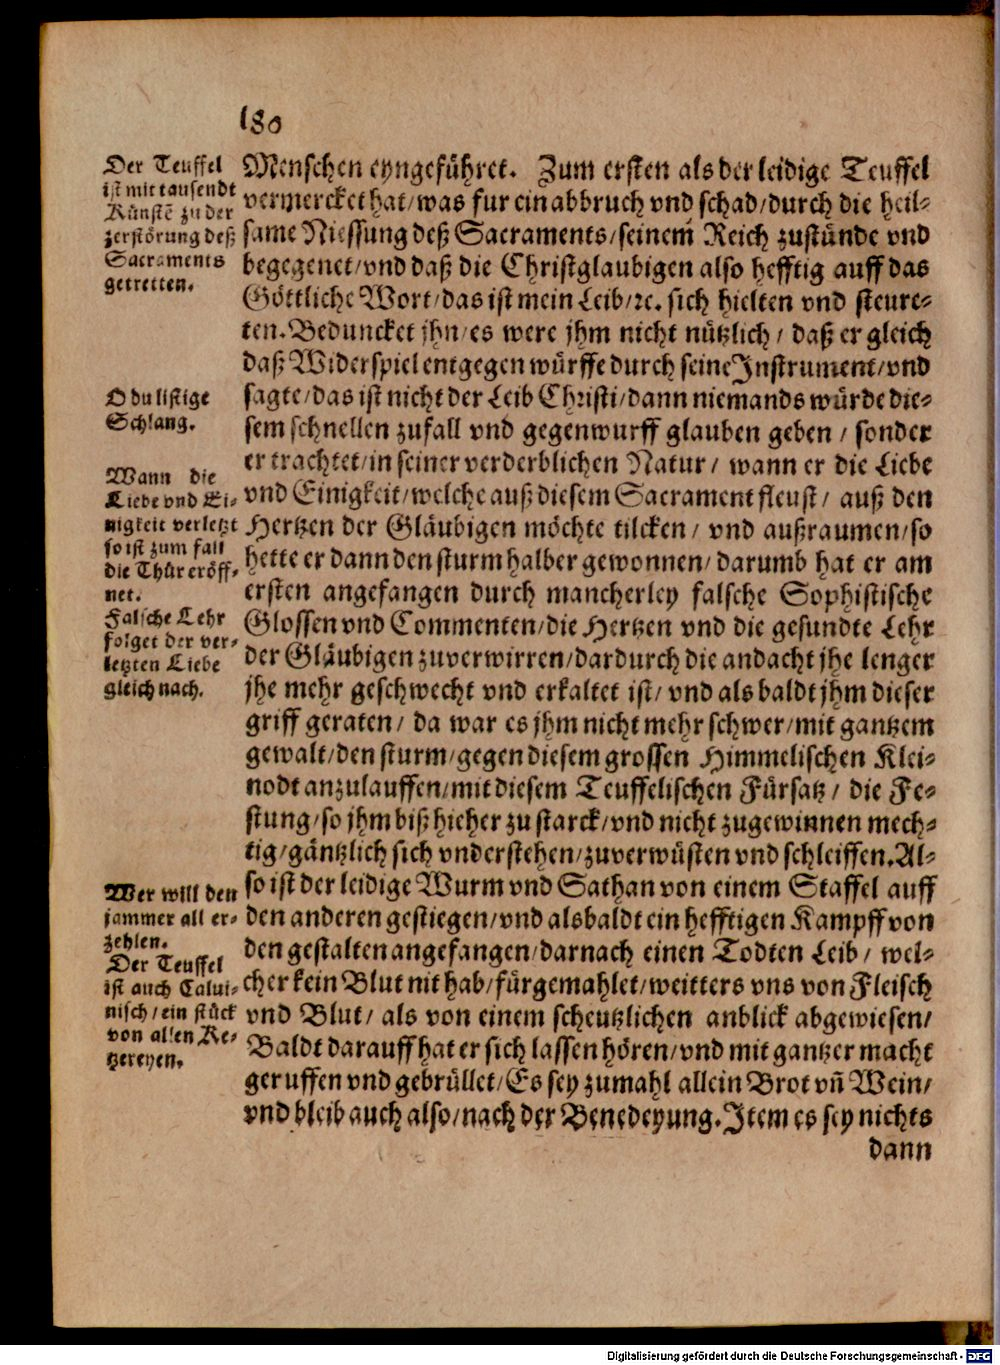 180
Der Teuffel
ist mit tausendt
Künstẽ zu der
zerstörung deß
Sacraments
getretten.
O du listige
Schlang.
Wann die
Liebe vnd Ei-
nigkeit verletzt
so ist zum fall
die Thür eröff-
net.
Falsche Lehr
folget der ver-
letzten Liebe
gleich nach.
Wer will den
jammer all er-
zehlen.
Der Teuffel
ist auch Calui-
nisch / ein stück
von allen Ke-
tzereyen.
Menschen eyngeführet. Zum ersten als der leidige Teuffel
vermercket hat / was fur ein abbruch vnd schad / durch die heil-
same Niessung deß Sacraments / seinem Reich zustünde vnd
begegenet / vnd daß die Christglaubigen also hefftig auff das
Göttliche Wort / das ist mein Leib / ꝛc. sich hielten vnd steure-
ten. Beduncket jhn / es were jhm nicht nützlich / daß er gleich
daß Widerspiel entgegen würffe durch seine Instrument / vnd
sagte / das ist nicht der Leib Christi / dann niemands würde die-
sem schnellen zufall vnd gegenwurff glauben geben / sonder
er trachtet / in seiner verderblichen Natur / wann er die Liebe
vnd Einigkeit / welche auß diesem Sacrament fleust / auß den
Hertzen der Gläubigen möchte tilcken / vnd außraumen / so
hette er dann den sturm halber gewonnen / darumb hat er am
ersten angefangen durch mancherley falsche Sophistische
Glossen vnd Commenten / die Hertzen vnd die gesundte Lehr
der Gläubigen zuverwirren / dardurch die andacht jhe lenger
jhe mehr geschwecht vnd erkaltet ist / vnd als baldt jhm dieser
griff geraten / da war es jhm nicht mehr schwer / mit gantzem
gewalt / den sturm / gegen diesem grossen Himmelischen Klei-
nodt anzulauffen / mit diesem Teuffelischen Fürsatz / die Fe-
stung / so jhm biß hieher zu starck / vnd nicht zugewinnen mech-
tig / gäntzlich sich vnderstehen / zuverwüsten vnd schleiffen. Al-
so ist der leidige Wurm vnd Sathan von einem Staffel auff
den anderen gestiegen / vnd alsbaldt ein hefftigen Kampff von
den gestalten angefangen / darnach einen Todten Leib / wel-
cher kein Blut nit hab / fürgemahlet / weitters vns von Fleisch
vnd Blut / als von einem scheutzlichen anblick abgewiesen /
Baldt darauff hat er sich lassen hören / vnd mit gantzer macht
geruffen vnd gebrüllet / Es sey zumahl allein Brot vñ Wein /
vnd bleib auch also / nach der Benedeyung. Item es sey nichts
dann
Digitalisierung gefördert durch die Deutsche Forschungsgemeinschaft - DFG